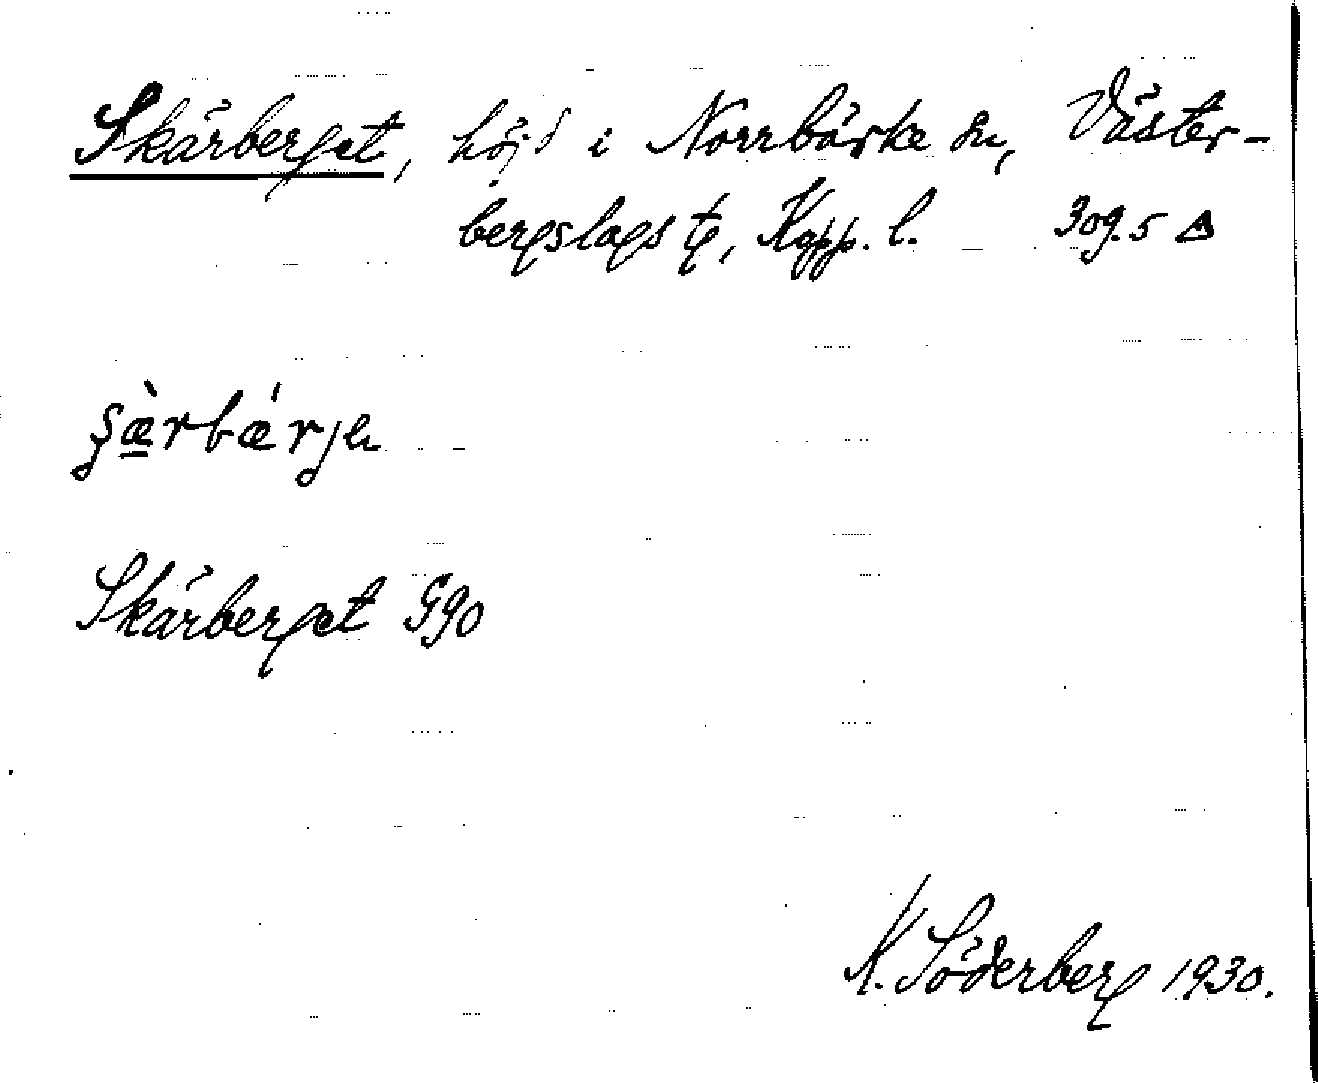 Skärberget, höjd i Norrbärke sn, Väster-
bergslags tg, Kopp. l. 309.5 △
Skärberget G90
K. Söderberg 1930.